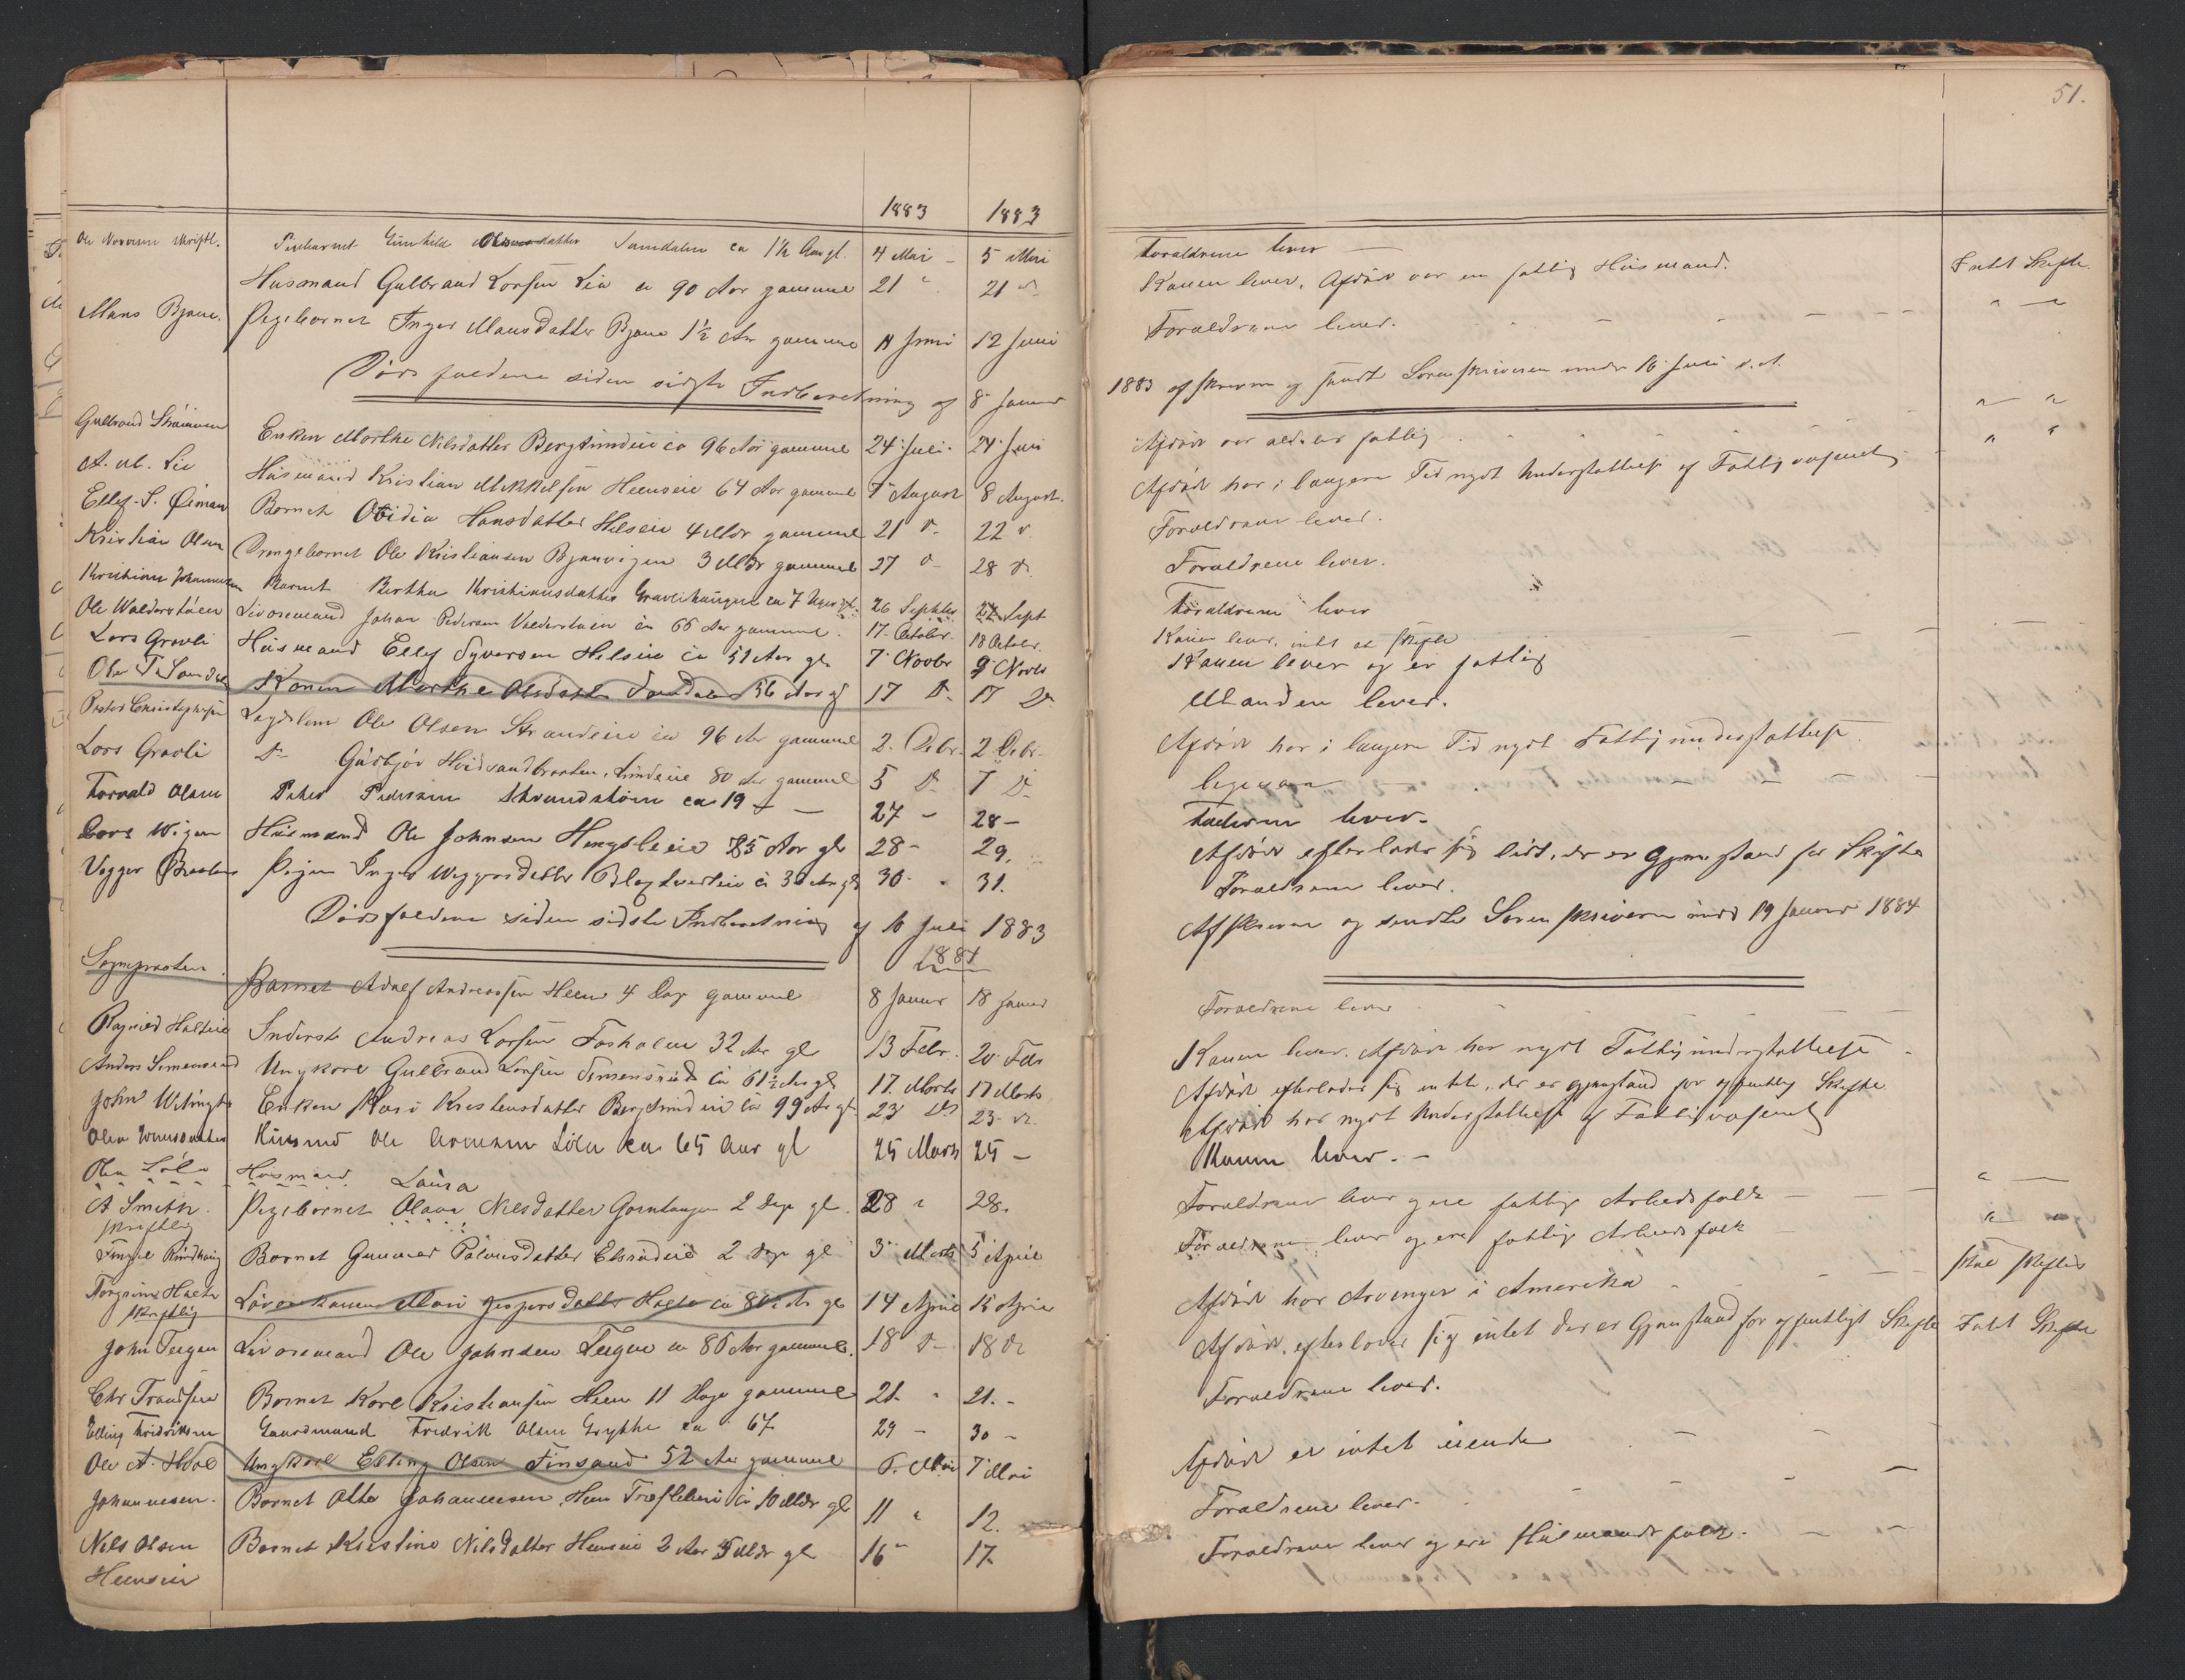 51.
1883 1883
Ole Noraunn Skriftl. Pigebarnet Gunhild datter Sandalen ca 1½ Aar gl. 4 Mai - 5 Mai Forældrene lever — Intet Skifte.
Husmand Gulbrand Larsen Lia ca 90 Aar gammel 21 " 21 Konen lever, Afdøde var en fattig Husmand. " — "
Mans Bjøre. Pigebarnet Inger Mansdatter Bjøre 1½ Aar gammel 11 Juni 12 Juni Forældrene lever.
Dødsfaldene siden sidste Indberetning af 8 Januar 1883 afskreven og sendt Sorenskriveren under 16 Juli d. A.
Gulbrand Enken Marthe Nilsdatter Bergsundeie ca 96 Aar gammel 24 Juli 24 Juli Afdøde var aldeles fattig " "
A. M. Lie Husmand Kristian Mikkelsen Heenseie 64 Aar gammel 7 August 8 August. Afdøde har i længere Tid nydt Understøttelse af Fattigvæsenet " "
Ellef S. Øiman Barnet Otidia Hansdatter Helseie 4 Mdr gammel 21 D. 22 D. Forældrene lever.
Kristian Olsen Drengebarnet Ole Kristiansen Bjørnvigen 3 Mdr gammel 27 D. 28 D. Forældrene lever.
Kristian Johannesen Barnet Berthe Kristiansdatter Gravlihaugen ca 7 Uger gl. 26 Septbr 27 Sept Forældrene lever
Ole Walderstøen Livøremand Johan Pedersen Valderstøen ca 66 Aar gammel. 17 October. 18 October. Konen lever, intet at skifte
Lars Gravli Husmand Ellef Syversen Helseie ca 51 Aar gl 7 Novbr 9 Novbr Konen lever og er fattig
Ole T. Sandal Konen Marthe Olsdatter Sandalen 56 Aar gl 17 D. 17 D. Manden lever.
Peder Christophersen Lægdslem Ole Olsen Strandeie ca 96 Aar gammel 2. Debr. 2 Debr. Afdøde har i længere Tid nydt Fattigunderstøttelse
Lars Gravli D. Gudbjør Hvidsandbraaten, Lindeie 80 Aar gammel 5 D. 7 D. ligesaa
Torvald Olsen Peder Pedersen Strandstøen ca 19 — 27 - 28 - Faderen lever.
Lars Wigen Husmand Ole Johnsen Hengsleeie 75 Aar gl 28 - 29. Afdøde efterlader sig lidt, der er Gjenstand for Skifte
Vegger Braaten Pigen Inger Veggersdatter ca 30 Aar gl 30 " 31. Forældrene lever.
Dødsfaldene siden sidste Indberetning af 16 Juli 1883 Afskreven og sendte Sorenskriveren med 19 Januar 1884
1884
Sognepresten. Barnet Adolf Andreassen Heen 4 Dage gammel 8 Januar 18 Januar Forældrene lever
Ragnild Inderst Andreas Larsen Fosholm 32 Aar gl 13 Febr. 20 Febr Konen lever. Afdøde har nydt Fattigunderstøttelse.
Anders Simensrud Ungkarl Gulbrand Larsen Simensrud ca 61½ Aar gl 17. Marts 17 Marts Afdøde efterlader sig intet, der er Gjenstand for offentlig Skifte
John Enken Kari Kristensdatter Bergsundeie ca 99 Aar gl 23 D. 23 D. Afdøde har nydt Understøttelse af Fattigvæsenet
Husmd Ole Arnesen Løken ca 65 Aar gl 25 Marts 25 - Konen lever. -
Ole Løken Husmand Laura
A Smith skriftlig Pigebarnet Olava Nilsdatter Gorntangen 2 Dage gl. 28 " 28. Forældrene lever og ere fattige Arbeidsfolk " —
Barnet Gunner Paulusdatter Elsrudeie 2 Dage gl 3 Marts 5 April Forældrene lever og ere fattige Arbeidsfolk " "
Torgrim Hulth skriftlig Livørekonen Mari Jespersdatter Holte ca 80½ Aar gl 14 April 15 April Afdøde har Arvinger i Amerika - skal skiftes
John Teigen Livøremand Ole Johnsen Teigen ca 86 Aar gammel. 18 D. 18 D. Afdøde efterlader sig intet der er Gjenstand for offentligt Skifte Intet Skifte
Chr Trondsen Barnet Karl Kristiansen Heen 11 Dage gammel 21. " 21. - Forældrene lever.
Elling Fredriksen Gaardmand Fredrik Olsen Grytte ca 67 29 - 30 -
Ole A. Hval Ungkarl Elling Olsen Finsand 52 Aar gammel 6. Mai 7 Mai Afdøde er intet eiende
Johannesen. Barnet Otto Johannesen Heen ca 10 Mdr gl 11 " 12. Forældrene lever.
Nils Olsen Heenseie Barnet Kristine Nilsdatter Heenseie 2 Aar 5 Mdr gl 16 " 17. Forældrene lever og ere Husmandsfolk.